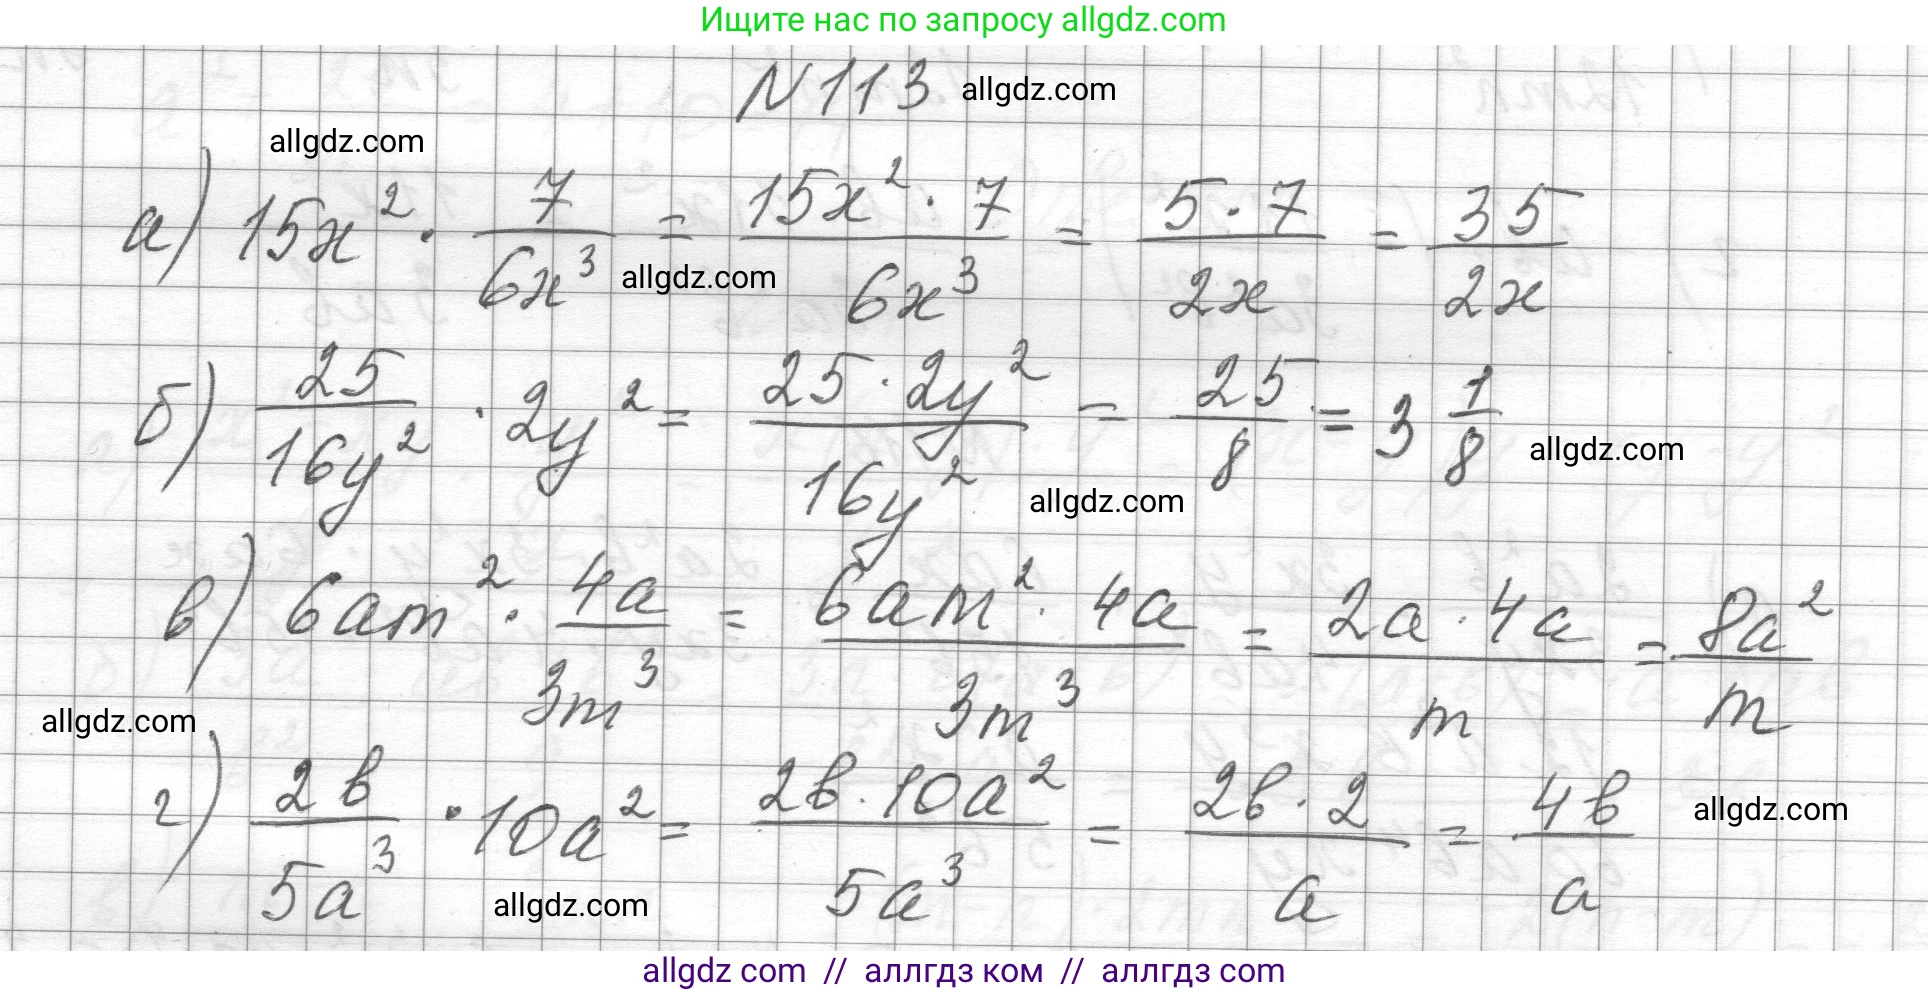 Ищите нас по запросу allgdz.com
N113 allgdz.com
allgdz.com
а) 15x² · 7/6x³ = 15x² · 7/6x³ = 5 · 7/2x = 35/2x
allgdz.com
б) 25/16y² · 2y² = 25 · 2y²/16y² = 25/8 = 3 1/8
allgdz.com
allgdz.com
в) 6am² · 4a/3m³ = 6am² · 4a/3m³ = 2a · 4a/m = 8a²/m
allgdz.com
г) 2b/5a³ · 10a² = 2b · 10a²/5a³ = 2b · 2/a = 4b/a
allgdz.com
allgdz.com
allgdz com // аллгдз ком // аллгдз com